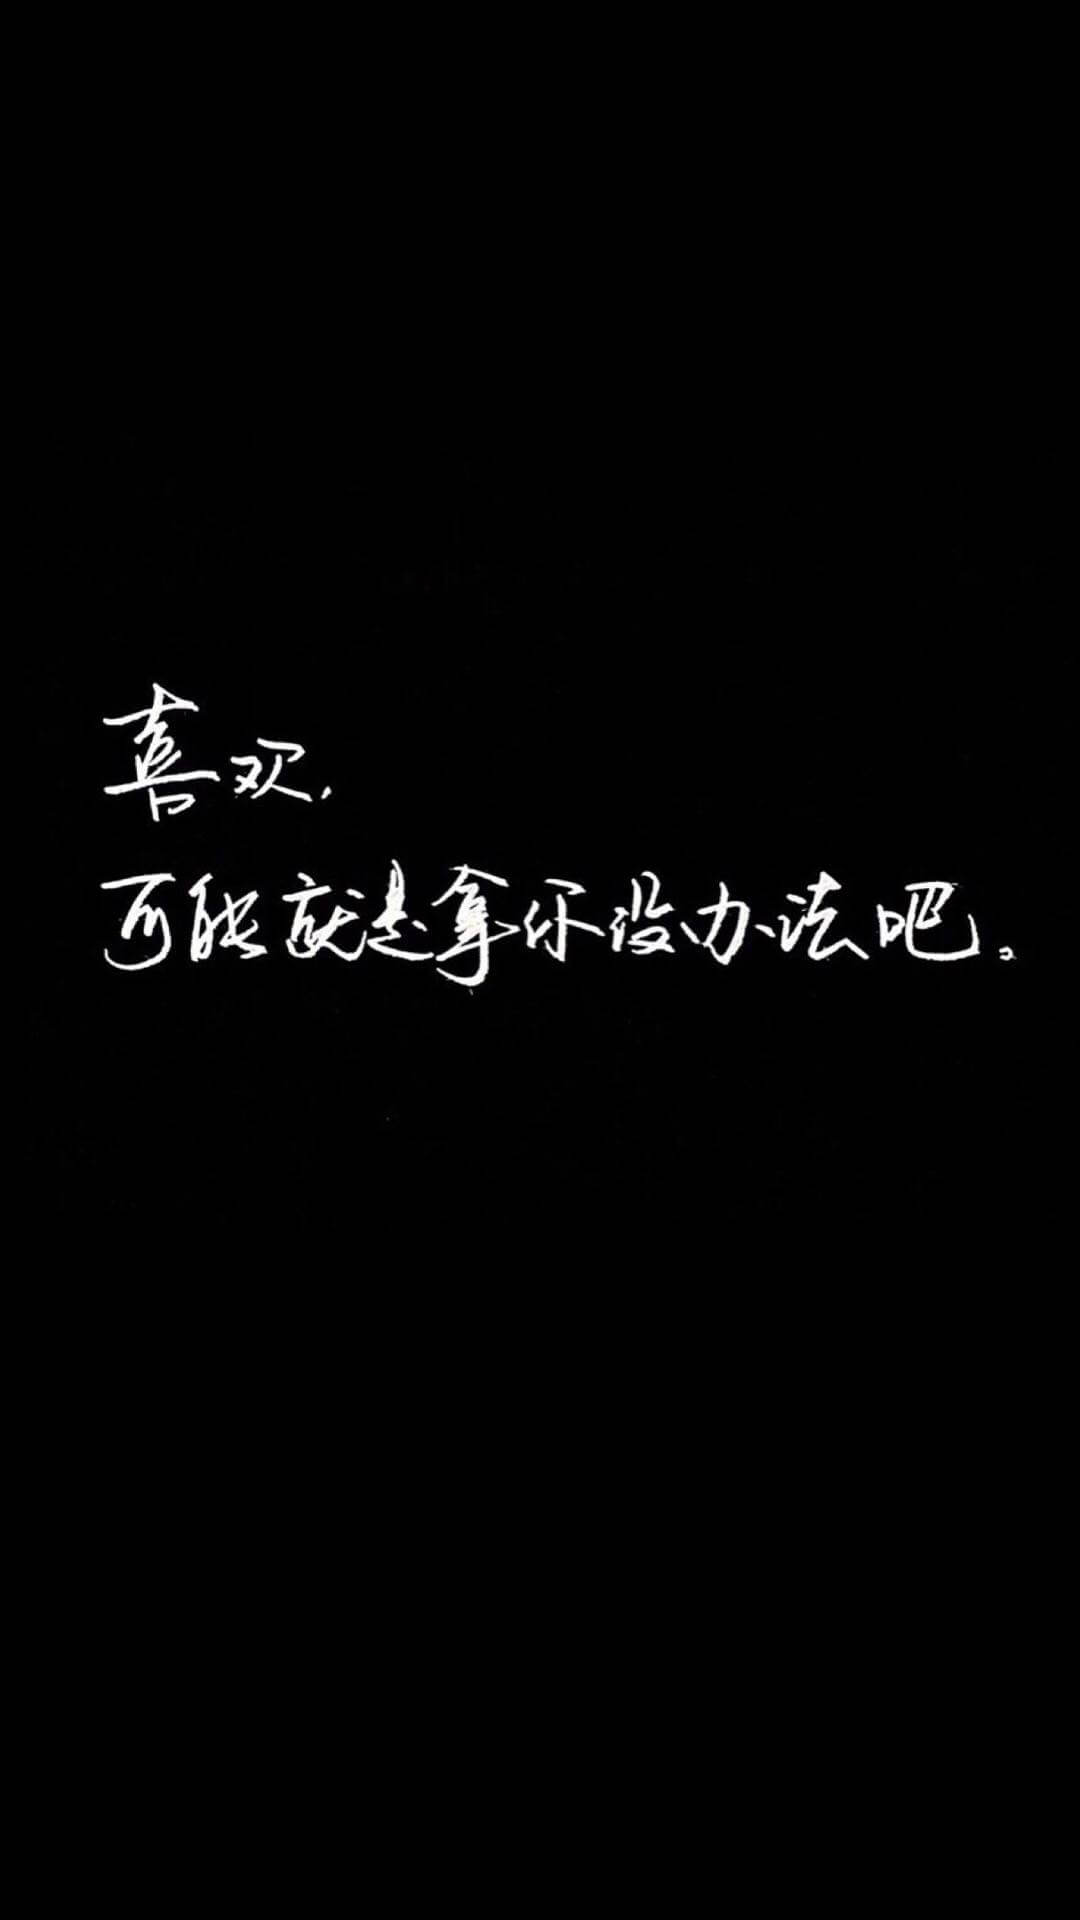 喜欢,
可能就是拿你没办法吧。